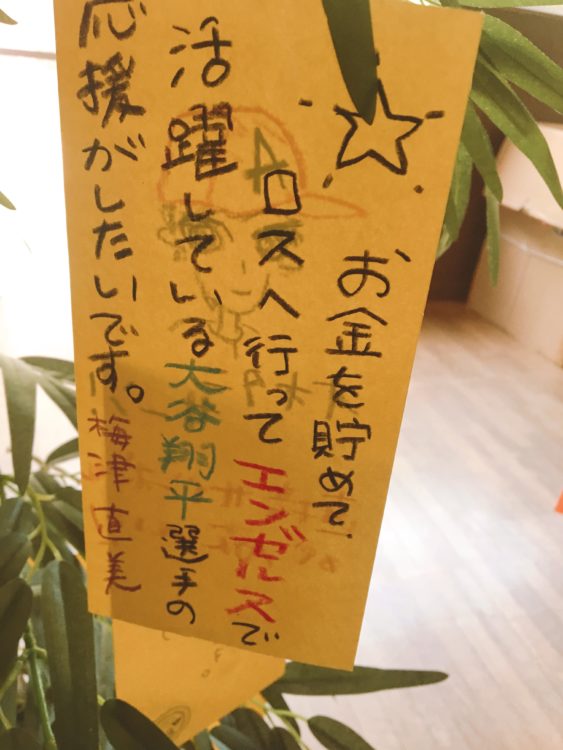 お金を貯めて、
ロスへ行ってエンゼルスで
活躍している大谷翔平選手の
応援がしたいです。梅津直美
A